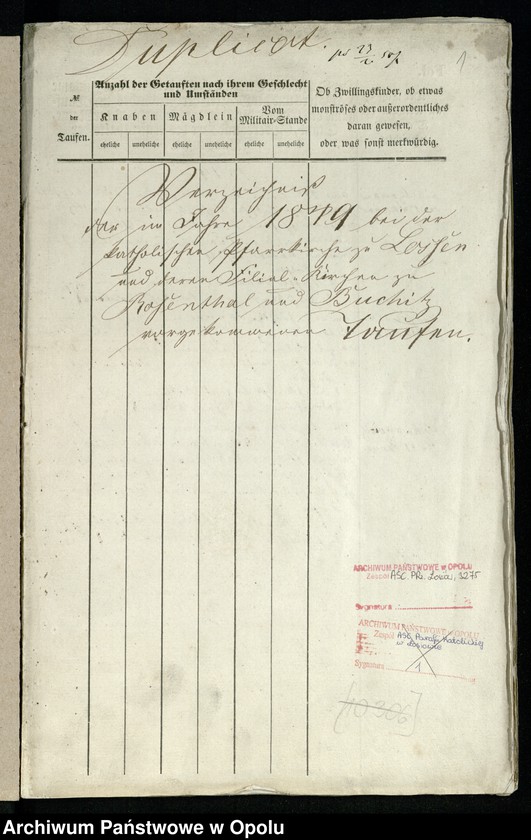 Duplicat.
1
Anzahl der Getauften nach ihrem Geschlecht
und Umständen
№
der
Taufen.
Knaben
Mägdlein
Vom
Militair-Stande
eheliche
uneheliche
eheliche
uneheliche
eheliche
uneheliche
Ob Zwillingskinder, ob etwas
monströses oder außerordentliches
daran gewesen,
oder was sonst merkwürdig.
Verzeichniß
der im Jahre 1849 bei der
katholischen Pfarrkirche zu Lossen
und deren Filial-Kirchen zu
Rosenthal und Buchitz
vorgekommenen Taufen.
ARCHIWUM PAŃSTWOWE w OPOLU
Zespół ASC PRz. 1275
Sygnatura
ARCHIWUM PAŃSTWOWE w OPOLU
Zespół ASC Parafii Katolickiej
w Łosiowie
Sygnatura 1
[10306]
Archiwum Państwowe w Opolu